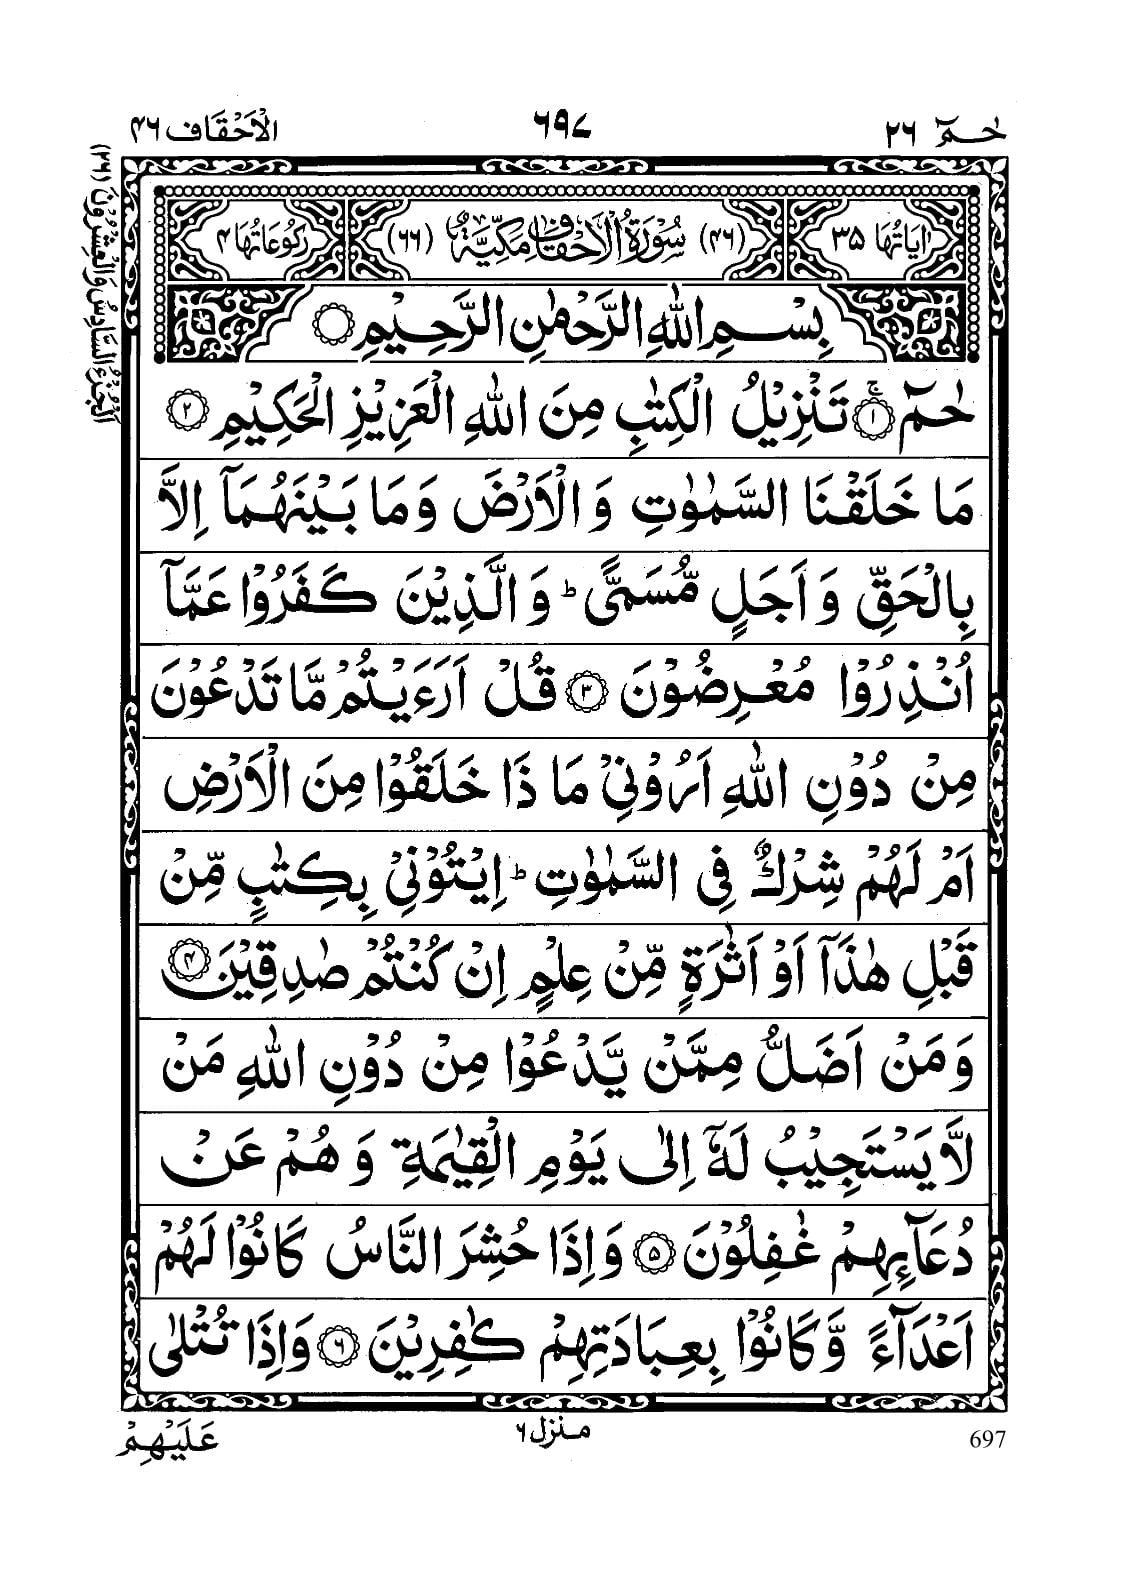 حٰمٓ ٢٦
٦٩٧
الْاَحْقَاف ٤٦
اَلْجُزْءُ السَّادِسُ وَالْعِشْرُوْنَ (٢٦)
اٰیَاتُهَا ٣٥
(٤٦) سُوْرَةُ الْاَحْقَافِ مَكِّیَّةٌ (٦٦)
رُكُوْعَاتُهَا ٤
بِسْمِ اللّٰهِ الرَّحْمٰنِ الرَّحِیْمِ
حٰمٓ ۚ﴿١﴾ تَنْزِیْلُ الْكِتٰبِ مِنَ اللّٰهِ الْعَزِیْزِ الْحَكِیْمِ ﴿٢﴾
مَا خَلَقْنَا السَّمٰوٰتِ وَ الْاَرْضَ وَ مَا بَیْنَهُمَاۤ اِلَّا
بِالْحَقِّ وَ اَجَلٍ مُّسَمًّی ؕ وَ الَّذِیْنَ كَفَرُوْا عَمَّاۤ
اُنْذِرُوْا مُعْرِضُوْنَ ﴿٣﴾ قُلْ اَرَءَیْتُمْ مَّا تَدْعُوْنَ
مِنْ دُوْنِ اللّٰهِ اَرُوْنِیْ مَا ذَا خَلَقُوْا مِنَ الْاَرْضِ
اَمْ لَهُمْ شِرْكٌ فِی السَّمٰوٰتِ ؕ اِیْتُوْنِیْ بِكِتٰبٍ مِّنْ
قَبْلِ هٰذَاۤ اَوْ اَثٰرَةٍ مِّنْ عِلْمٍ اِنْ كُنْتُمْ صٰدِقِیْنَ ﴿٤﴾
وَ مَنْ اَضَلُّ مِمَّنْ یَّدْعُوْا مِنْ دُوْنِ اللّٰهِ مَنْ
لَّا یَسْتَجِیْبُ لَهٗۤ اِلٰی یَوْمِ الْقِیٰمَةِ وَ هُمْ عَنْ
دُعَآئِهِمْ غٰفِلُوْنَ ﴿٥﴾ وَ اِذَا حُشِرَ النَّاسُ كَانُوْا لَهُمْ
اَعْدَآءً وَّ كَانُوْا بِعِبَادَتِهِمْ كٰفِرِیْنَ ﴿٦﴾ وَ اِذَا تُتْلٰی
عَلَیْهِمْ
منزل ٦
697